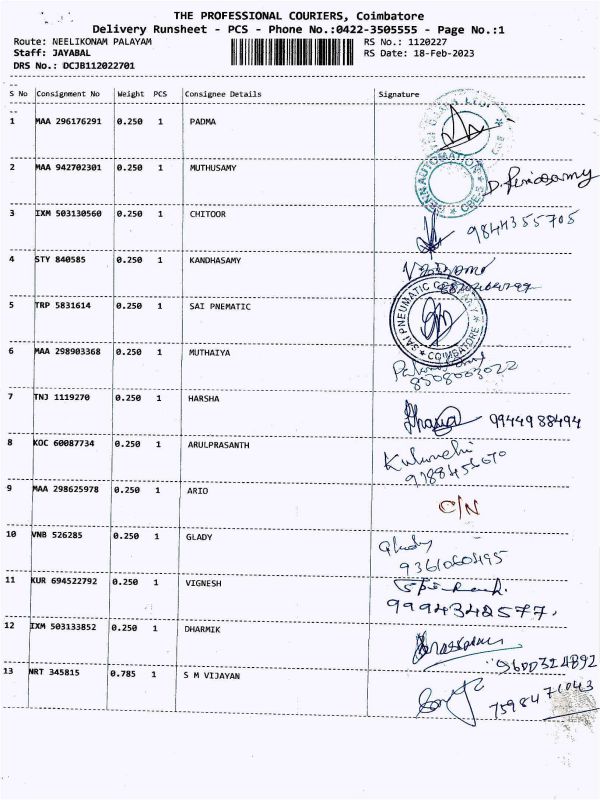 THE PROFESSIONAL COURIERS, Coimbatore
Delivery Runsheet - PCS - Phone No.:0422-3505555 - Page No.:1
Route: NEELIKONAM PALAYAM
RS No.: 1120227
Staff: JAYABAL
RS Date: 18-Feb-2023
DRS No.: DCJB112022701
S No Consignment No Weight PCS Consignee Details Signature
1 MAA 296176291 0.250 1 PADMA
2 MAA 942702301 0.250 1 MUTHUSAMY
3 IXM 503130560 0.250 1 CHITOOR 9844355705
4 STY 840585 0.250 1 KANDHASAMY
5 TRP 5831614 0.250 1 SAI PNEMATIC
SAI PNEUMATIC COIMBATORE
6 MAA 298903368 0.250 1 MUTHAIYA
7 TNJ 1119270 0.250 1 HARSHA 9944988494
8 KOC 60087734 0.250 1 ARULPRASANTH
9 MAA 298625978 0.250 1 ARIO C/N
10 VNB 526285 0.250 1 GLADY Glady
9361060495
11 KUR 694522792 0.250 1 VIGNESH
12 IXM 503133852 0.250 1 DHARMIK
13 NRT 345815 0.785 1 S M VIJAYAN